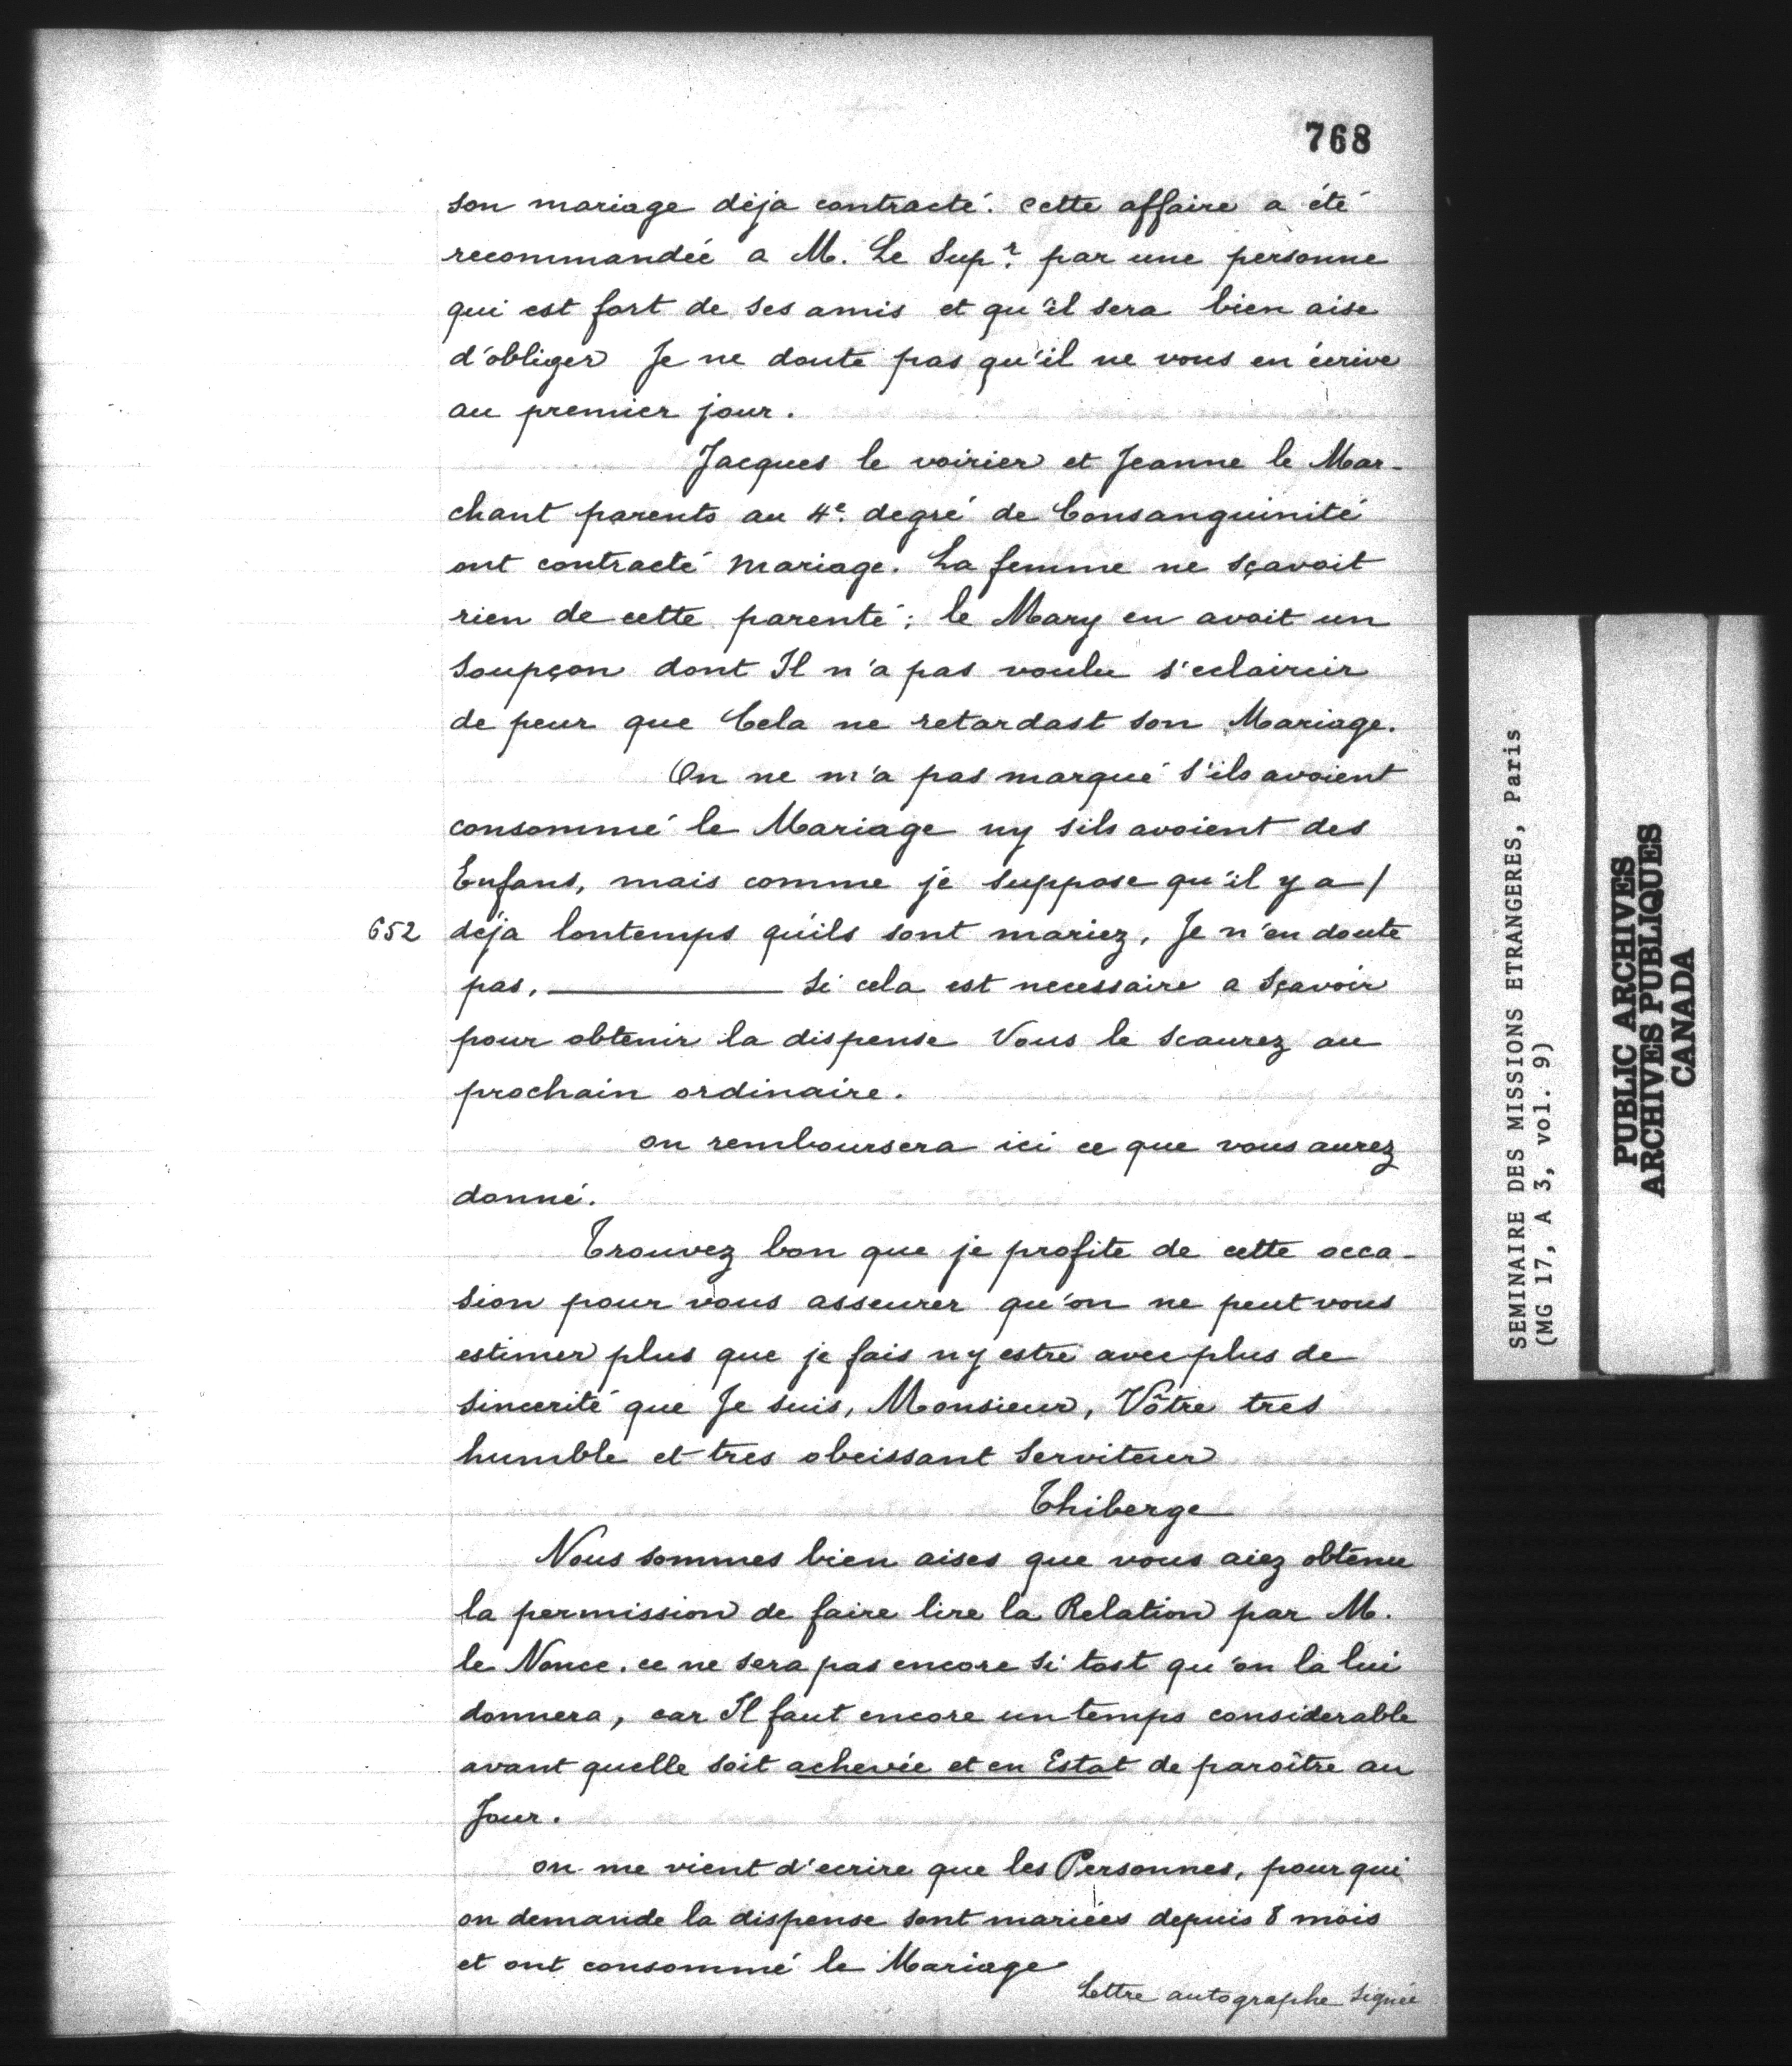 768
son mariage déja contracté. cette affaire a été
recommandée a M. Le Supr. par une personne
qui est fort de ses amis et qu'il sera bien aise
d'obliger Je ne doute pas qu'il ne vous en écrive
au premier jour.
Jacques le voirier et Jeanne le Mar-
chant parents au 4e. degré de Consanguinité
ont contracté mariage. La femme ne sçavoit
rien de cette parenté; le Mary en avoit un
soupçon dont Il n'a pas voulu s'eclaircir
de peur que Cela ne retardast son Mariage.
On ne m'a pas marqué s'ils avoient
consommé le Mariage ny sils avoient des
Enfans, mais comme je suppose qu'il y a /
652 déja lontemps qu'ils sont mariez, Je n'en doute
pas. ———— Si cela est necessaire a sçavoir
pour obtenir la dispense Vous le scaurez au
prochain ordinaire.
on remboursera ici ce que vous aurez
donné.
Trouvez bon que je profite de cette occa-
sion pour vous asseurer qu'on ne peut vous
estimer plus que je fais ny estre avec plus de
sincerité que Je suis, Monsieur, Vôtre tres
humble et tres obeissant Serviteur
Thiberge
Nous sommes bien aises que vous aiez obtenu
la permission de faire lire la Relation par M.
le Nonce. ce ne sera pas encore si tost qu'on la lui
donnera, car Il faut encore un temps considerable
avant quelle soit achevée et en Estat de paroître au
Jour.
on me vient d'ecrire que les Personnes, pour qui
on demande la dispense sont mariées depuis 8 mois
et ont consommé le Mariage
Lettre autographe signée
SEMINAIRE DES MISSIONS ETRANGERES, Paris
(MG 17, A 3, vol. 9)
PUBLIC ARCHIVES
ARCHIVES PUBLIQUES
CANADA